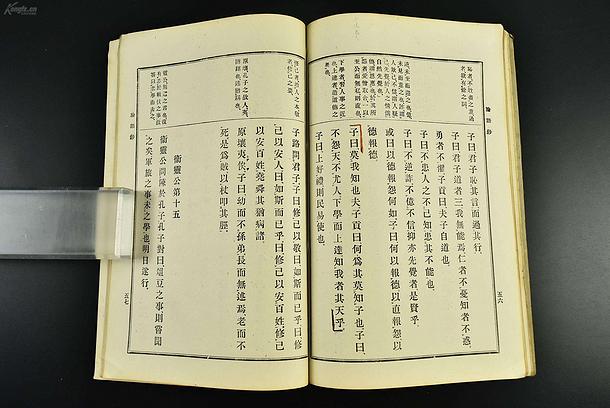 Kongfz.cn
子曰君子恥其言而過其行、
子曰君子道者三我無能焉仁者不憂知者不惑、
勇者不懼子貢曰夫子自道也、
子曰不患人之不己知患其不能也、
子曰不逆詐不億不信抑亦先覺者是賢乎、
或曰以德報怨何如子曰何以報德以直報怨以
德報德、
子曰莫我知也夫子貢曰何為其莫知子也子曰、
不怨天不尤人下學而上達知我者其天乎、
子曰上好禮則民易使也、
五六
論語鈔
子路問君子子曰修己以敬曰如斯而已乎曰修
己以安人曰如斯而已乎曰修己以安百姓修己
以安百姓堯舜其猶病諸、
原壤夷俟子曰幼而不孫弟長而無述焉老而不
死是為賊以杖叩其脛、
衞靈公第十五
衞靈公問陳於孔子孔子對曰俎豆之事則嘗聞
之矣軍旅之事未之學也明日遂行、
論語鈔
五七